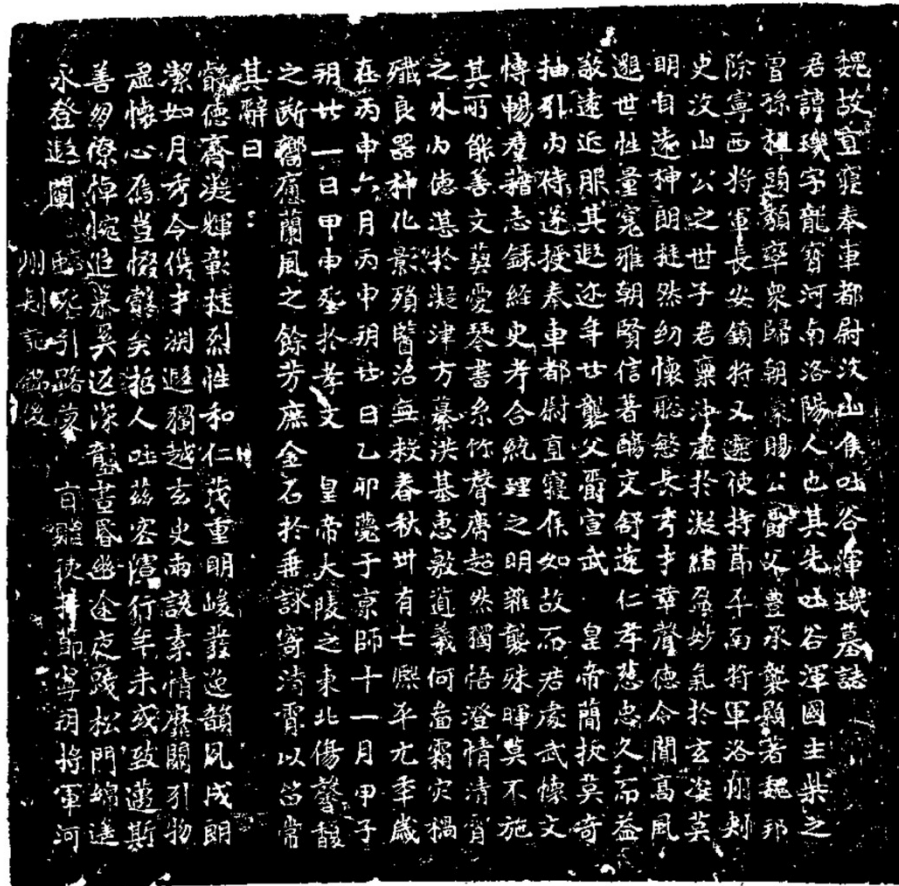 魏故直寢奉車都尉汶山侯吐谷渾璣墓誌
君諱璣字龍寶河南洛陽人也其先吐谷渾國主柴之
曾孫祖頭頹率眾歸朝蒙賜公爵父豊承襲顯著魏邦
除寧西將軍長安鎮將又遷使持節平南將軍洛州刾
史汶山公之世子君稟沖虛於凝緒承妙氣於玄姿英
明自遠神朗挺然幼懷聡慜長秀才華聲德令聞高風
遐世性量寬雅朝賢信著酶文舒遠仁孝慈忠久而益
敬遠近服其遐迩年廿襲父爵宣武 皇帝簡拔英奇
抽引內侍遂授奉車都尉直寢侯如故而君處武懷文
博暢群籍志錄經史考合統理之明雜襲殊暉莫不施
其所能善文英愛琴書糸竹聲膚超然獨悟澄情清霄
之外內德湛於凝津方纂洪基惠敷道義何啚霜灾禍
殲良器神化影殞醫治無救春秋卅有七熙平元年歲
在丙申六月丙申朔廿日乙卯薨于京師十一月甲子
朔廿一日甲申塟於孝文 皇帝大陵之東北傷聲馥
之断響應蘭風之餘芳庶金石於垂詠寄清霄以笛常
其辭曰
懿德齊凝輝彰挺烈性和仁茂重明峻發逸韻夙成朗
潔如月秀令儁才渊遐獨越玄史兩該素情靡闕引物
虛懷心焉豈惙懿矣拓人吐茲容濬行年未或致邁斯
善朋僚悼惋追慕奚返深龍晝昏幽途夜踐松門綿進
永登遐闡
臨兆引路蒙 旨贈使持節寧朔將軍河
州刾記銘後